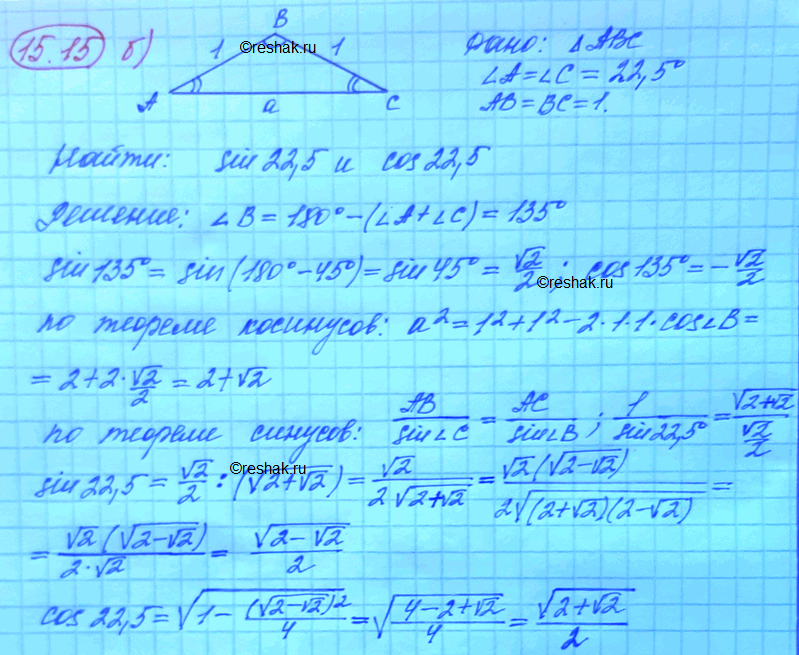 15.15 б)
B
1 ©reshak.ru 1
A a C
Дано: △ABC
∠A=∠C=22,5°
AB=BC=1.
Найти: sin 22,5 и cos 22,5
Решение: ∠B=180°-(∠A+∠C)=135°
sin 135°= sin(180°-45°)=sin 45°= √2/2; cos 135°=-√2/2
©reshak.ru
по теореме косинусов: a²=1²+1²-2·1·1·cos∠B=
=2+2·√2/2=2+√2
по теореме синусов: AB/sin∠C = AC/sin∠B; 1/sin 22,5° = √(2+√2)/(√2/2)
©reshak.ru
sin 22,5=√2/2:(√(2+√2))=√2/(2√(2+√2))=√2(√(2-√2))/(2√((2+√2)(2-√2)))=
=√2(√(2-√2))/(2·√2)=√(2-√2)/2
cos 22,5=√(1-(√(2-√2))²/4)=√((4-2+√2)/4)=√(2+√2)/2